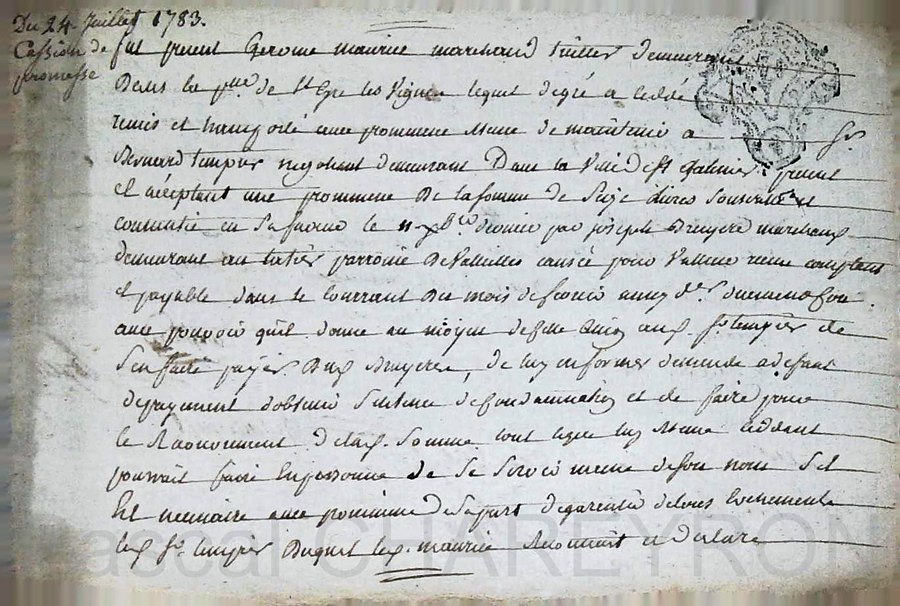 Du 24 Juillet 1783.
Cession de
promesse
fut present gerome maurice marchand tuillier demeurant
Dans la p.sse de St les Vignes lequel degré a ceddé
remis et transporté avec promesse de maintenir a Sr
Bernard tempier negotiant demeurant Dans la Ville de St Galmier present
et acceptant une promesse De la somme de Seize livres Souscritte et
consentie en Sa faveur le 11 xbre dernier par joseph Bruyere marchand
demeurant au parroisse De Valleilles causée pour Valleur recue comptant
et payable dans le courrant Du mois de fevrier aussy der
avec pouvoir qu'il donne au moyen de cette aud. Sr tempier de
S'en faire payer Dud. Bruyere, de luy en former demande a deffaut
de payement d'obtenir Sentence de condamnation et de faire pour
le Recouvrement de lad. Somme tout ceque luy meme ceddant
pourrait faire En personne de Se Servir meme de Son nom S'il
Est necessaire avec promesse de Sa part de garentie de tous Evenements
led. Sr tempier Duquel led. maurice Reconnoit et declare
Pascal CHAREYRON